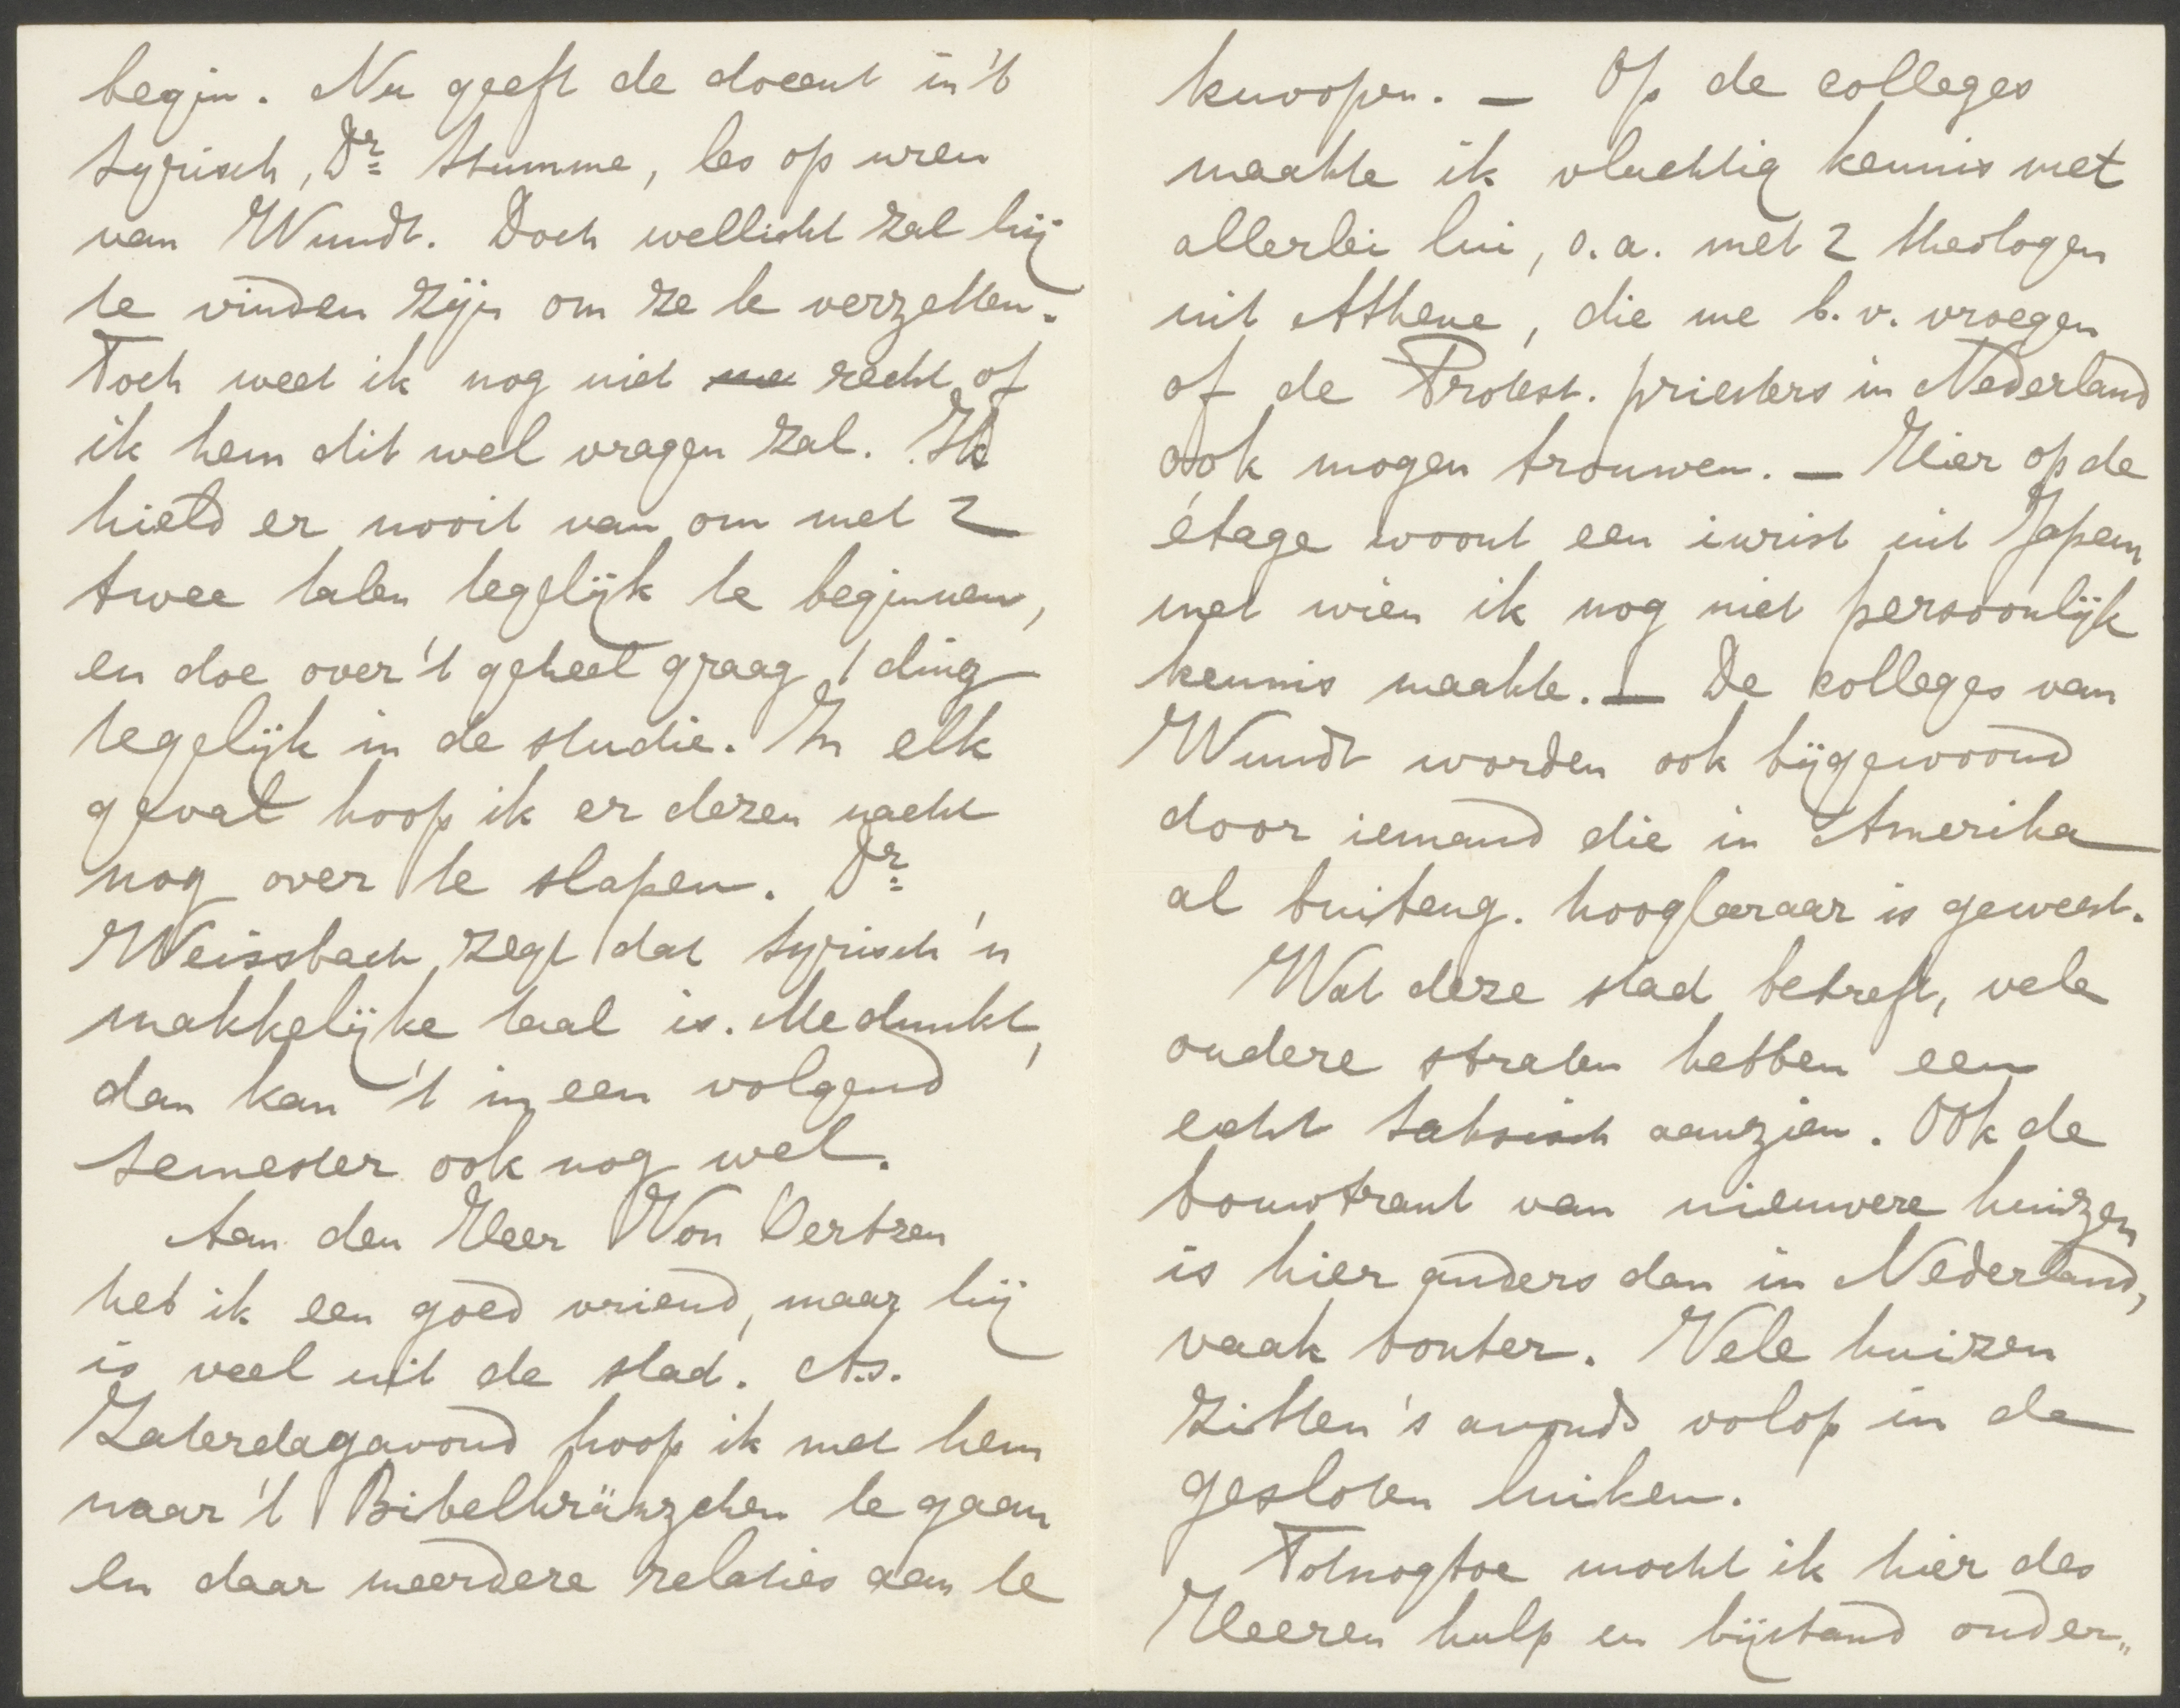 begin. Nu geeft de docent in 't
Syrisch, Dr. Stumme, les op uren
van Wundt. Doch wellicht zal hij
te vinden zijn om ze te verzetten.
Toch weet ik nog niet recht of
ik hem dit wel vragen zal. Ik
hield er nooit van om met 2
twee talen tegelijk te beginnen,
en doe over 't geheel graag 1 ding
tegelijk in de studie. In elk
geval hoop ik er dezen nacht
nog over te slapen. Dr.
Weissbach zegt dat Syrisch 'n
makkelijke taal is. Me dunkt,
dan kan 't in een volgend
semester ook nog wel.
Aan den Heer Von Oertzen
heb ik een goed vriend, maar hij
is veel uit de stad. A.s.
Zaterdagavond hoop ik met hem
naar 't Bibelkränzchen te gaan
en daar meerdere relaties aan te
knoopen. — Op de colleges
maakte ik vluchtig kennis met
allerlei lui, o.a. met 2 theologen
uit Athene, die me b.v. vroegen
of de Protest. priesters in Nederland
ook mogen trouwen. — Hier op de
étage woont een iurist uit Japan
met wien ik nog niet persoonlijk
kennis maakte. — De colleges van
Wundt worden ook bijgewoond
door iemand die in Amerika
al buiteng. hoogleraar is geweest.
Wat deze stad betreft, vele
oudere straten hebben een
echt Saksisch aanzien. Ook de
bouwtrant van nieuwere huizen
is hier anders dan in Nederland,
vaak bonter. Vele huizen
zitten 's avonds volop in de
gesloten luiken.
Totnogtoe mocht ik hier des
Heeren hulp en bijstand onder„